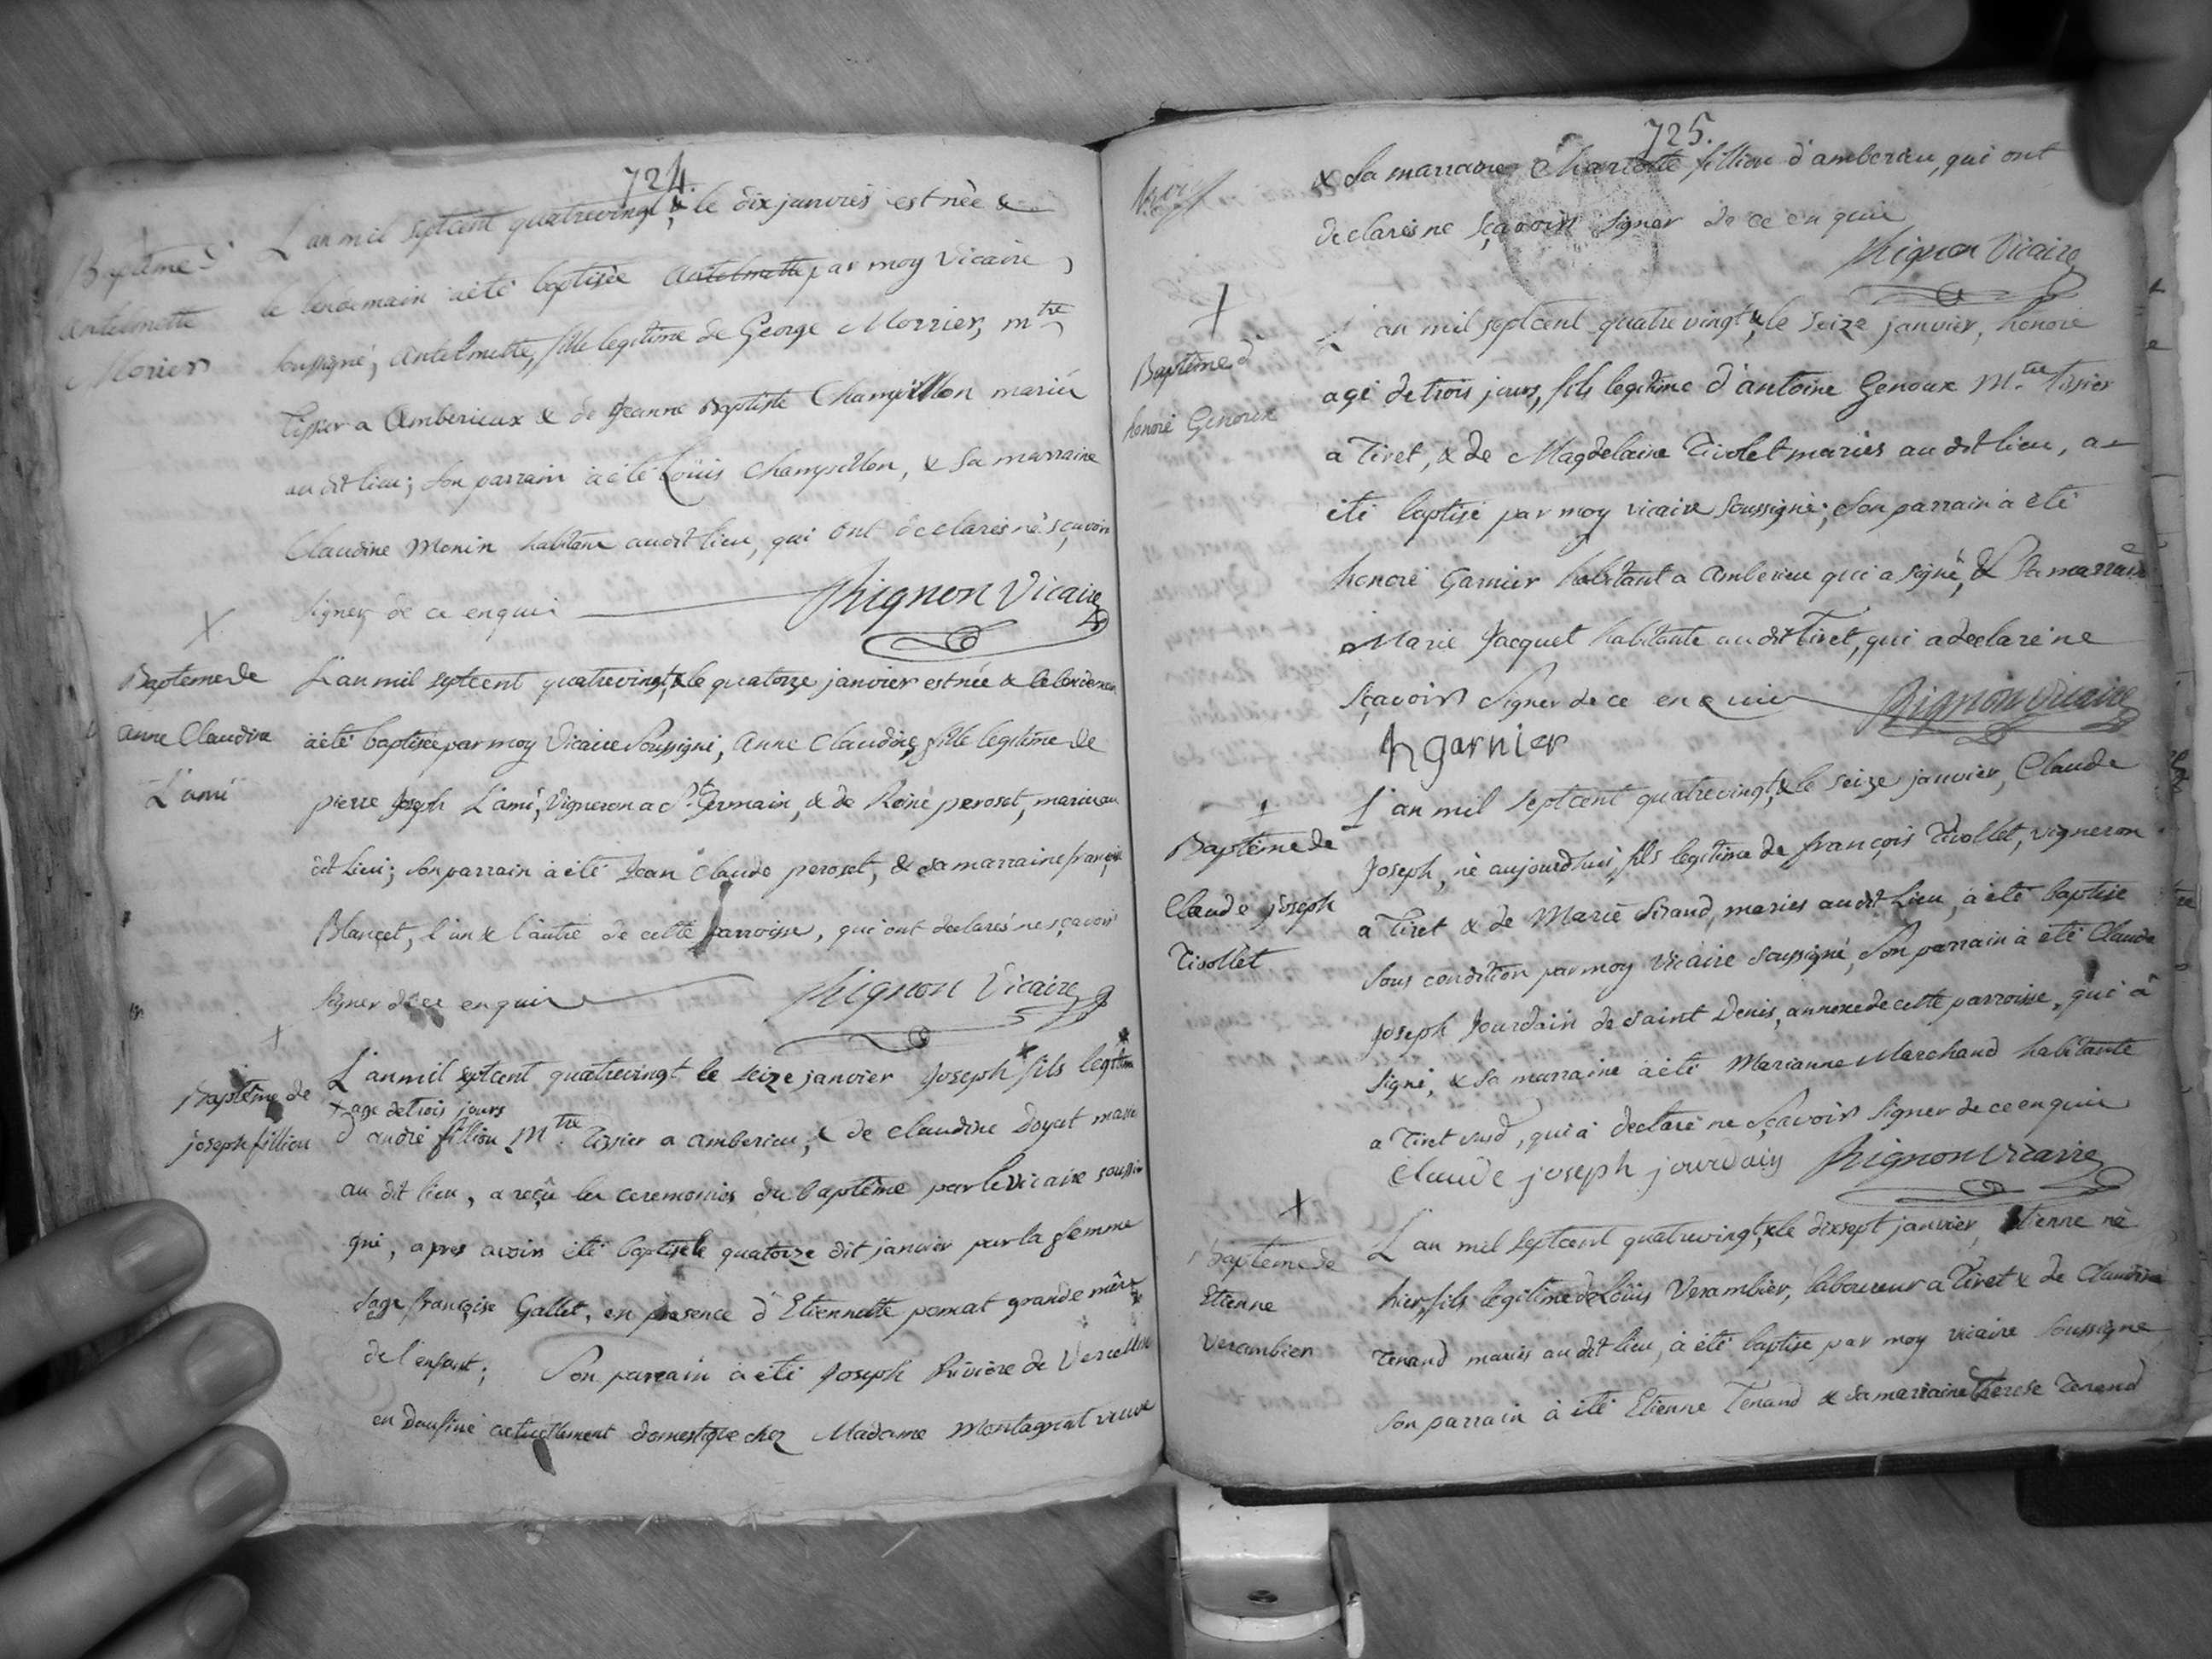 724.
Baptême d'
antelmette
Morier
L'an mil septcent quatrevingt, & le dix janvier est née &
le lendemain a été baptisée antelmette par moy Vicaire
soussigné, antelmette, fille legitime de George Morrier, mtre
Tissier a Amberieux & de Jeanne Baptiste Champillon mariés
au dit lieu; son parrain a été Loüis Champillon, & sa marraine
Claudine Monin habitans audit lieu, qui ont declarés ne sçavoir
signer de ce enquis
Rignon Vicaire
X
Baptême de
anne Claudine
L'ami
L'an mil septcent quatrevingt, & le quatorze janvier est née & le lendemain
a été baptisée par moy Vicaire soussigné, Anne Claudine, fille legitime de
pierre Joseph L'ami, Vigneron a St Germain, & de Reine peroset, mariés au
dit lieu; son parrain à été Jean Claude peroset, & sa marraine françoise
Blançet, l'un & l'autre de cette parroisse, qui ont declarés ne sçavoir
signer de ce enquis
Rignon Vicaire
X
Baptême de
joseph fillion
L'an mil septcent quatrevingt le seize janvier Joseph fils legitime
+ age de trois jours
d'andré fillion Mtre Tissier a amberieu, & de Claudine Doyat mariés
au dit lieu, a reçû les ceremonies du baptême par le vicaire soussi-
gné, apres avoir été baptisé le quatorze dit janvier par la femme
sage françoise Gallet, en presence d'Etiennette pomat grande mère
de l'enfant; Son parrain à été Joseph Rivière de Vercellin
en Daufiné actuellement domestique chez Madame Montagnat veuve
725.
& sa marraine Charlotte fillion d'amberieu, qui ont
declarés ne sçavoir signer de ce enquis
Rignon Vicaire
X
Baptême d'
honoré Genoux
L'an mil septcent quatrevingt & le seize janvier, honoré
agé de trois jours, fils legitime d'antoine Genoux Mtre Tissier
a Tiret, & de Magdelaine Tivolet mariés au dit lieu, a
été baptisé par moy vicaire soussigné; son parrain à été
honoré Garnier habitant a Amberieu qui a signé, & sa marraine
Marie Jacquet habitante au dit Tiret, qui a declaré ne
sçavoir signer de ce enquis
Rignon Vicaire
h garnier
+
Baptême de
Claude joseph
Tivollet
L'an mil septcent quatrevingt, & le seize janvier, Claude
Joseph, né aujourdhui, fils legitime de françois Tivollet, vigneron
a Tiret & de Marie Sirand, mariés au dit lieu, à été baptisé
sous condition par moy Vicaire soussigné, son parrain à été Claude
Joseph Jourdain de saint Denis, annexe de cette parroisse, qui à
signé, & sa marraine à été Marianne Marchand habitante
a Tiret susd, qui à declaré ne sçavoir signer de ce enquis
Claude joseph jourdain Rignon Vicaire
X
Baptême de
Etienne
Verambier
L'an mil septcent quatrevingt, & le dixsept janvier, Etienne né
hier, fils legitime de Loüis Verambier, laboureur a Tiret & de Claudine
Tenand mariés au dit lieu, à été baptisé par moy vicaire soussigné
son parrain à été Etienne Tenand & sa marraine Therese Tenand